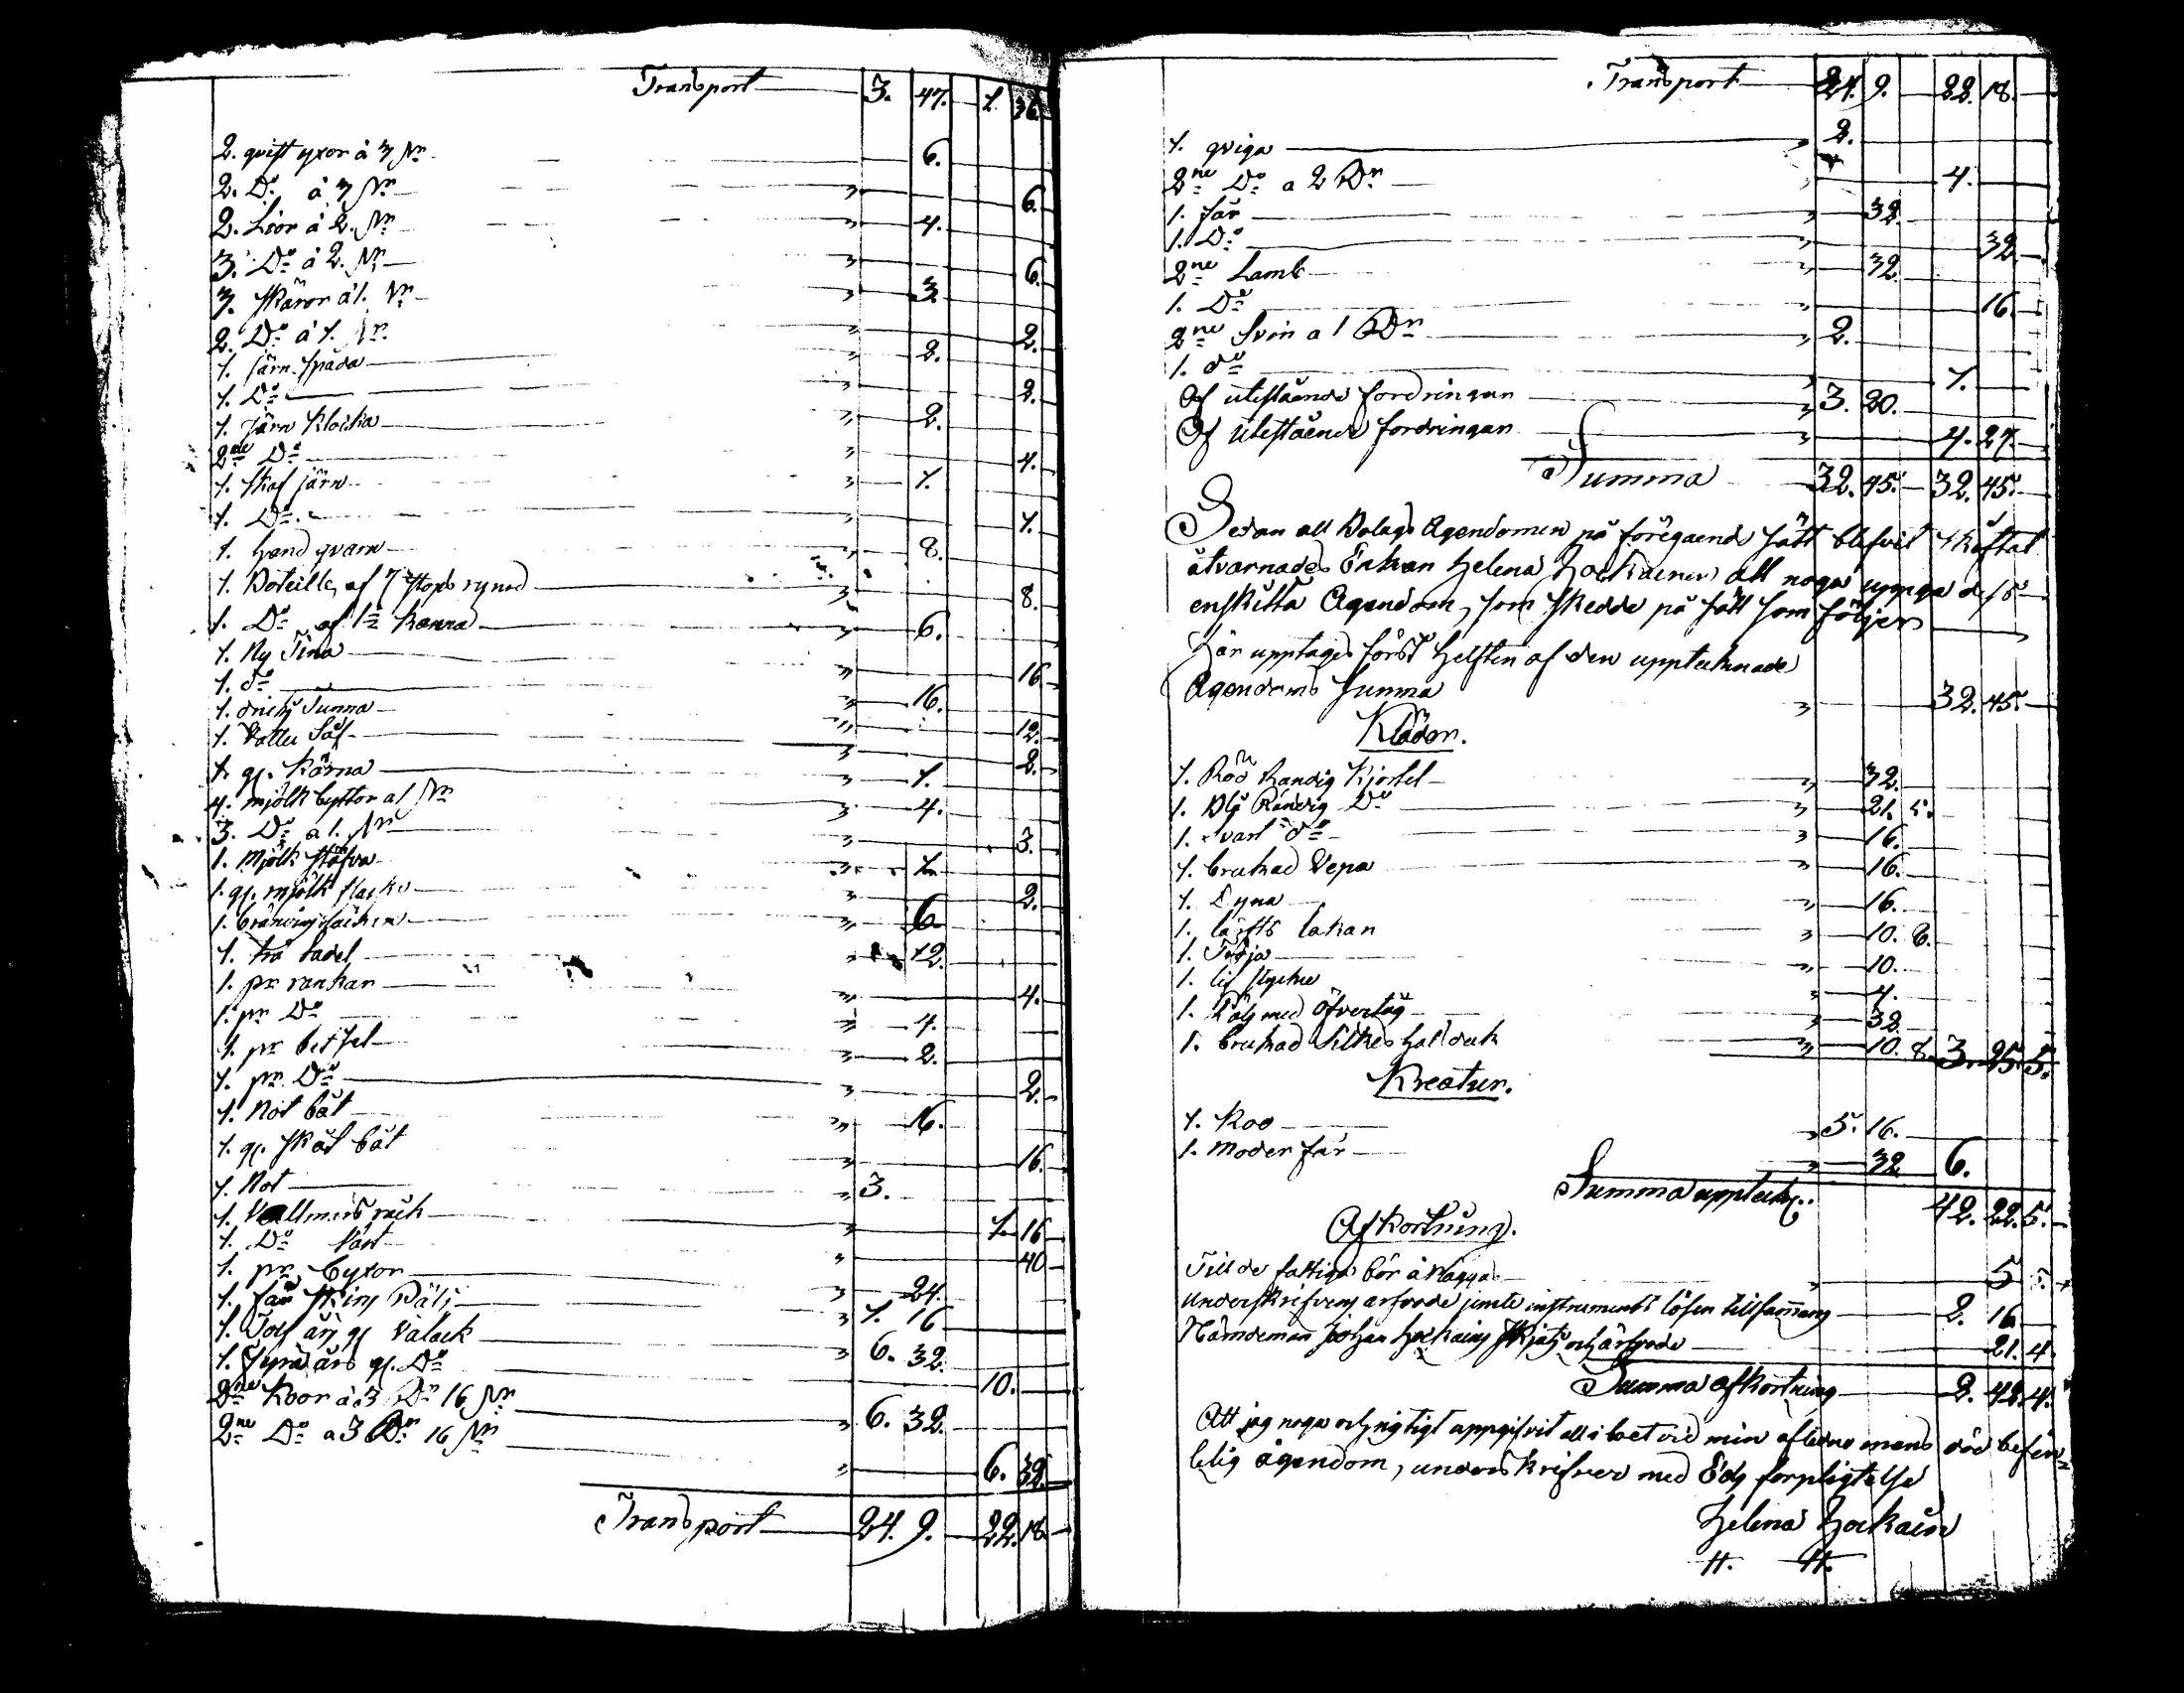 Transport 3. 47. 1. 36.
2. qvist yxor à 3 S:r 6.
2. D:o à 3 S:r 6.
2. Lior à 2. S:r 4.
3. D:o à 2. S:r 6.
3. skäror à 1. S:r 3.
2. D:o à 1. S:r 2.
1. Järn spada 2.
1. D:o 2.
1. Järn Klocka 2.
2:ne D:o 4.
1. skaf järn 1.
1. D:o 1.
1. hand qvarn 8.
1. Boteille, af 7 stops rymd 8.
1. D:o af 1½ kanna 6.
1. Ny Tina 16.
1. d:o 16.
1. Tunna 12.
1. Vatten Så 2.
1. gl. Kärna 1.
4. mjölk byttor a 1 S:r 4.
3. D:o a 1. S:r 3.
1. Mjölk stäfva 1.
1. gl. mjölk flaska 2.
1. 6.
1. trä sadel 12.
1. pr rankar 4.
1. pr D:o 4.
1. pr betsel 2.
1. pr D:o 2.
1. Not båt 16.
1. gl. sköt båt 16.
1. Not 3.
1. Vallmars räck 1. 16
1. D:o Väst 40
1. pr byxor 24.
1. får skins Päls 1. 16
1. Tolf års gl Valack 6. 32.
1. Fyra års gl. D:o 10.
2:ne Koor à 3 D:r 16 S:r 6. 32.
2:ne D:o a 3 D:r 16 S:r 6. 32.
Transport 24. 9. 22. 18.
Transport 24. 9. 22. 18.
1. qviga 2.
2:ne D:o a 2 D:r 4.
1. får 32.
1. D:o 32.
2:ne Lamb 32.
1. D:o 16.
2:ne Svin a 1 D:r 2.
1. d:o 1.
Af utestående fordringar 3. 20.
Af utestående fordringar 4. 27.
Summa 32. 45. 32. 45.
Sedan all Bolags Agendomen på föregående sätt blefvit skiftat
åtvarnades Enkan Helena Hockainen att noga uppga
enskilta Agendom, som skedde på sätt som följer
här upptages först helften af den upptecknade
Agendoms Summa 32. 45.
Kläder.
1. Röd Randig Kjortel 32.
1. Blå Randig D:o 21. 5.
1. Svart d:o 16.
1. brukad Vepa 16.
1. Dyna 16.
1. lärfts lakan 10. 8.
1. Tröja 10.
1. lif stycke 4.
1. Päls med öfvertåg 32.
1. brukad Silkes halsduk 10. 8. 3. 25. 5.
Kreatur.
1. Koo 5. 16.
1. Moder får 32. 6.
Summa uppteckn:. 42. 22. 5.
Afkortning.
Till de fattiga bör aflägga 5
Underskrifvens arfvode jemte instrumentets lösen tillsammans 2. 16
Nämdeman Johan Hockains skjuts och arfvode 21. 4.
Summa afkortning 2. 42. 4.
Att jag noga och rigtigt uppgifvit all i boet vid min aflidne mans död befin-
telig ägendom, underskrifver med Eds förpligtelse
Helena Hockain
H. H.